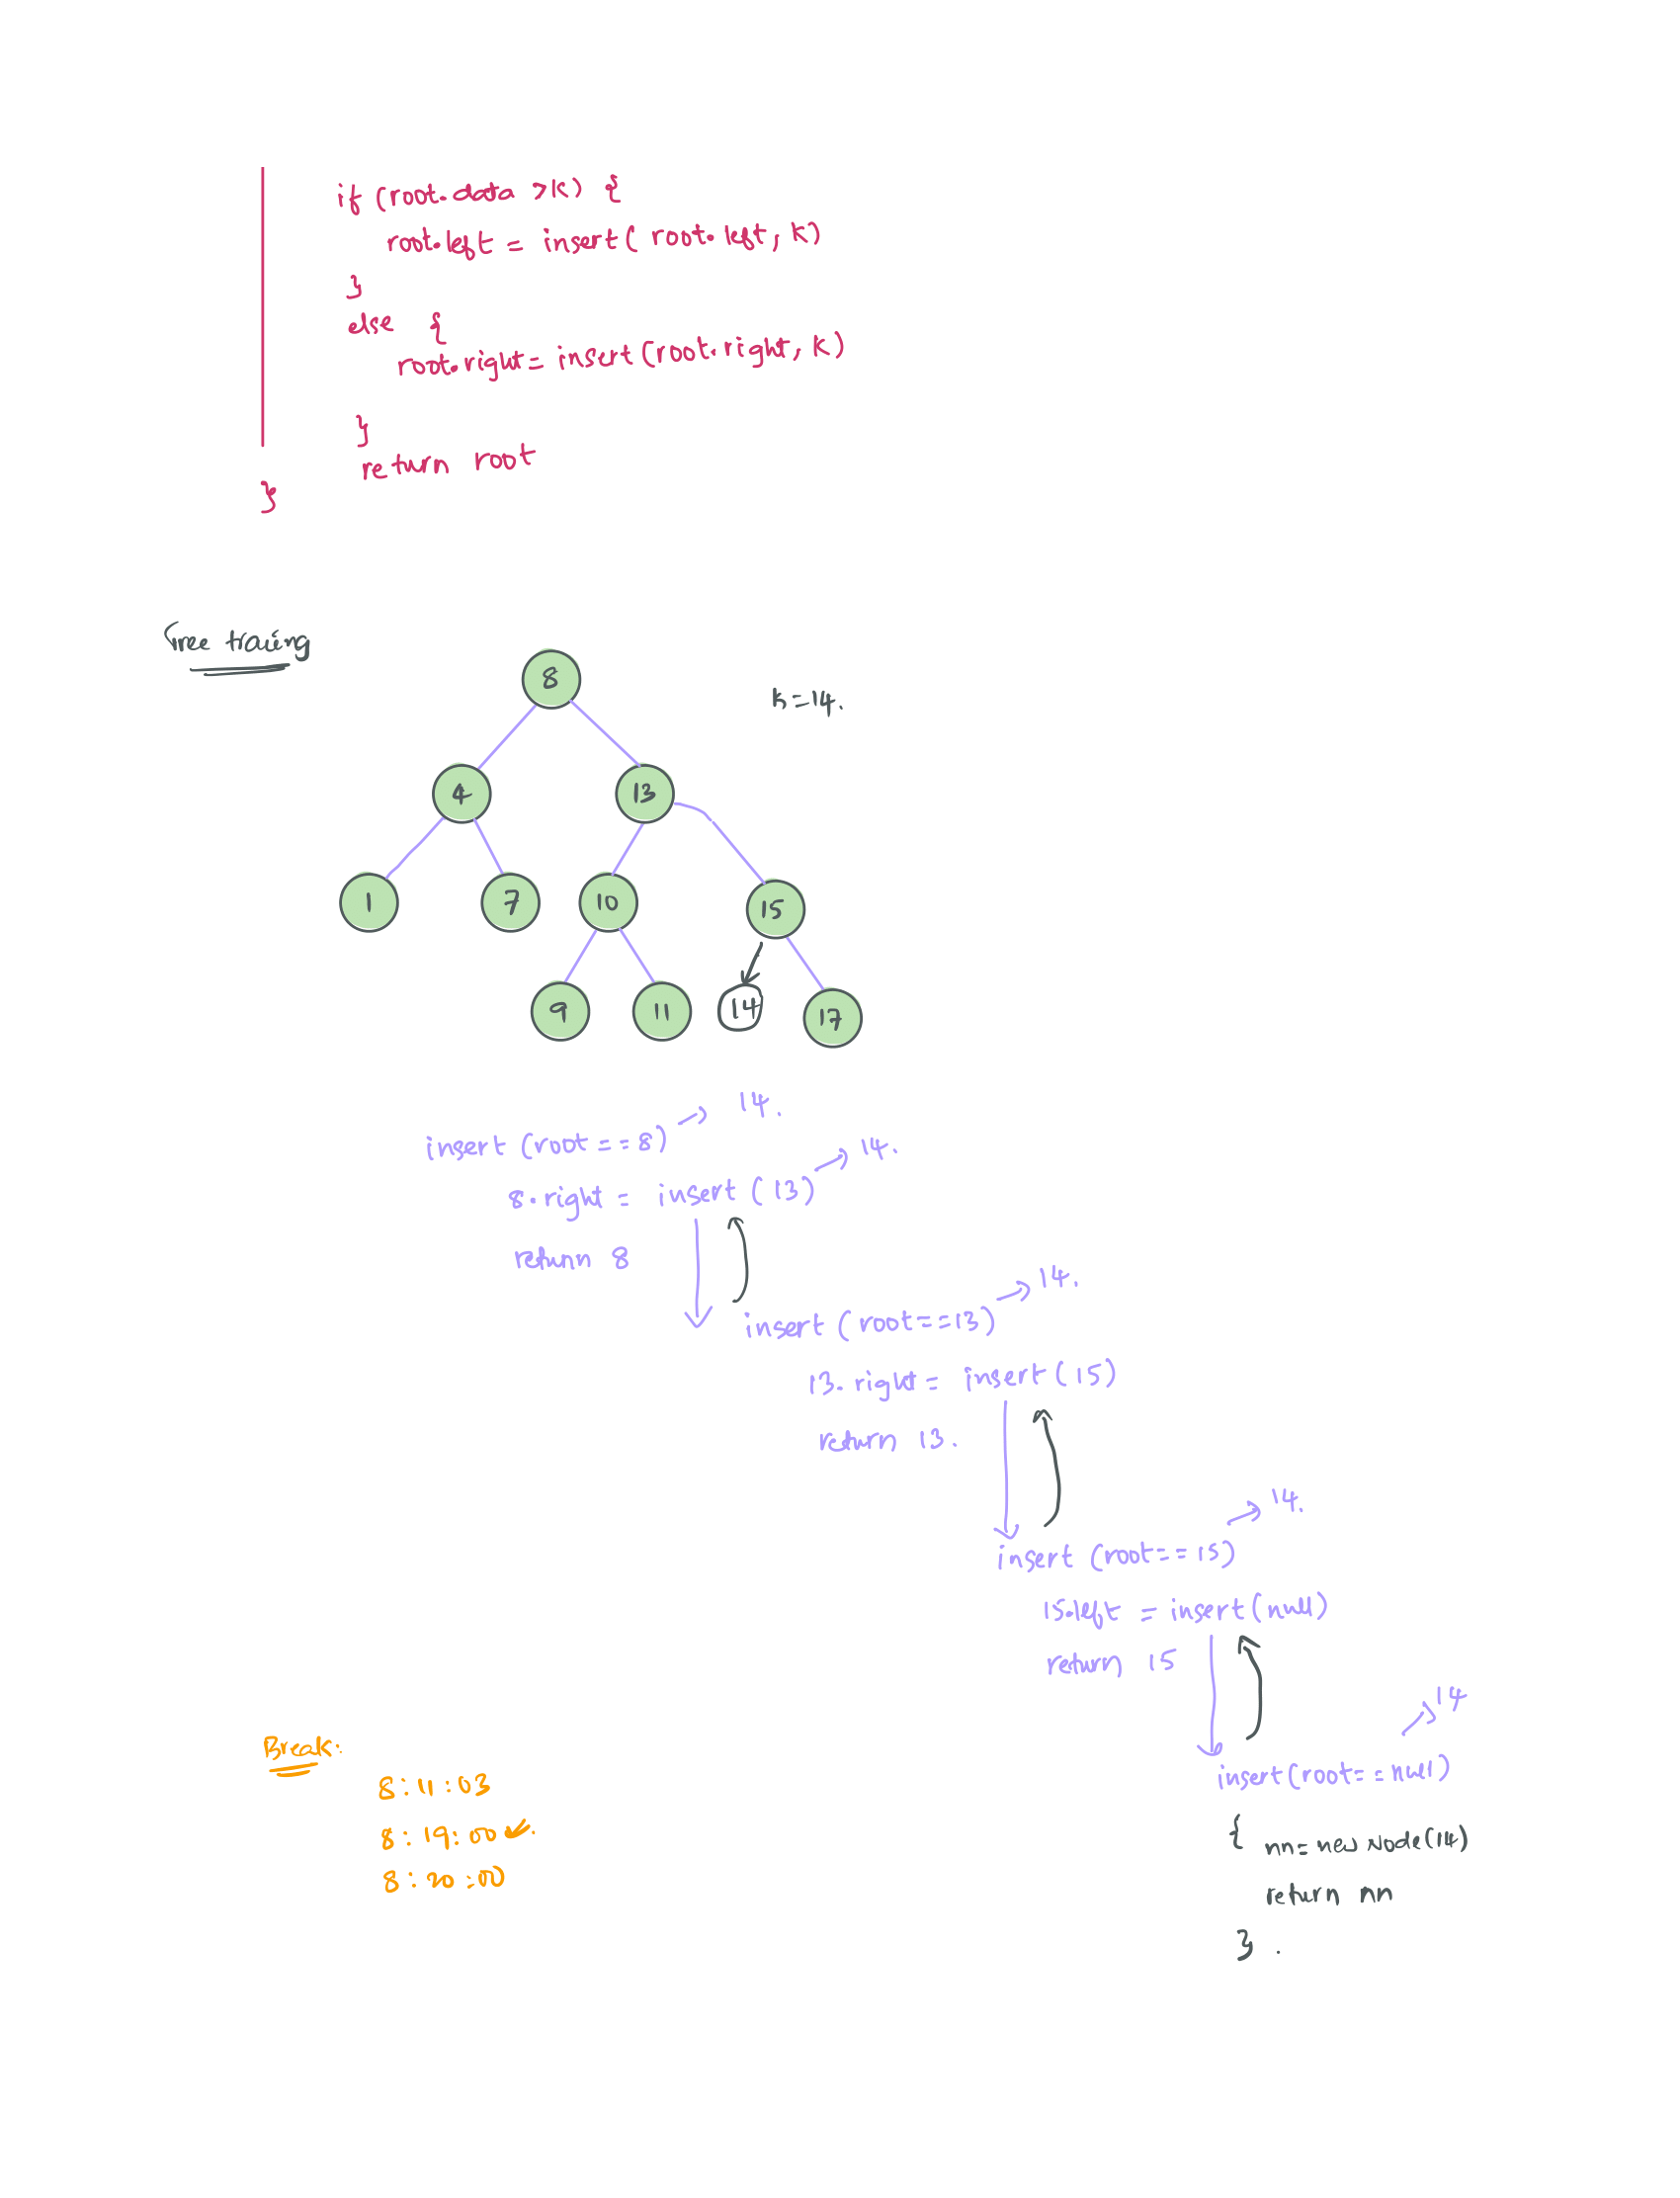 if (root.data >k) {
root.left = insert( root.left, k)
}
else {
root.right= insert (root.right, k)
}
return root
}
Tree traing
8
k=14.
4
13
1
7
10
15
9
11
14
17
insert (root ==8) → 14.
8.right = insert (13) → 14.
return 8
insert (root==13) → 14.
13.right = insert (15)
return 13.
insert (root==15) → 14.
15.left = insert (null)
return 15
insert(root==null) → 14
{ nn= new Node(14)
return nn
} .
Break:
8:11:03
8:19:00 ↙.
8:20:00